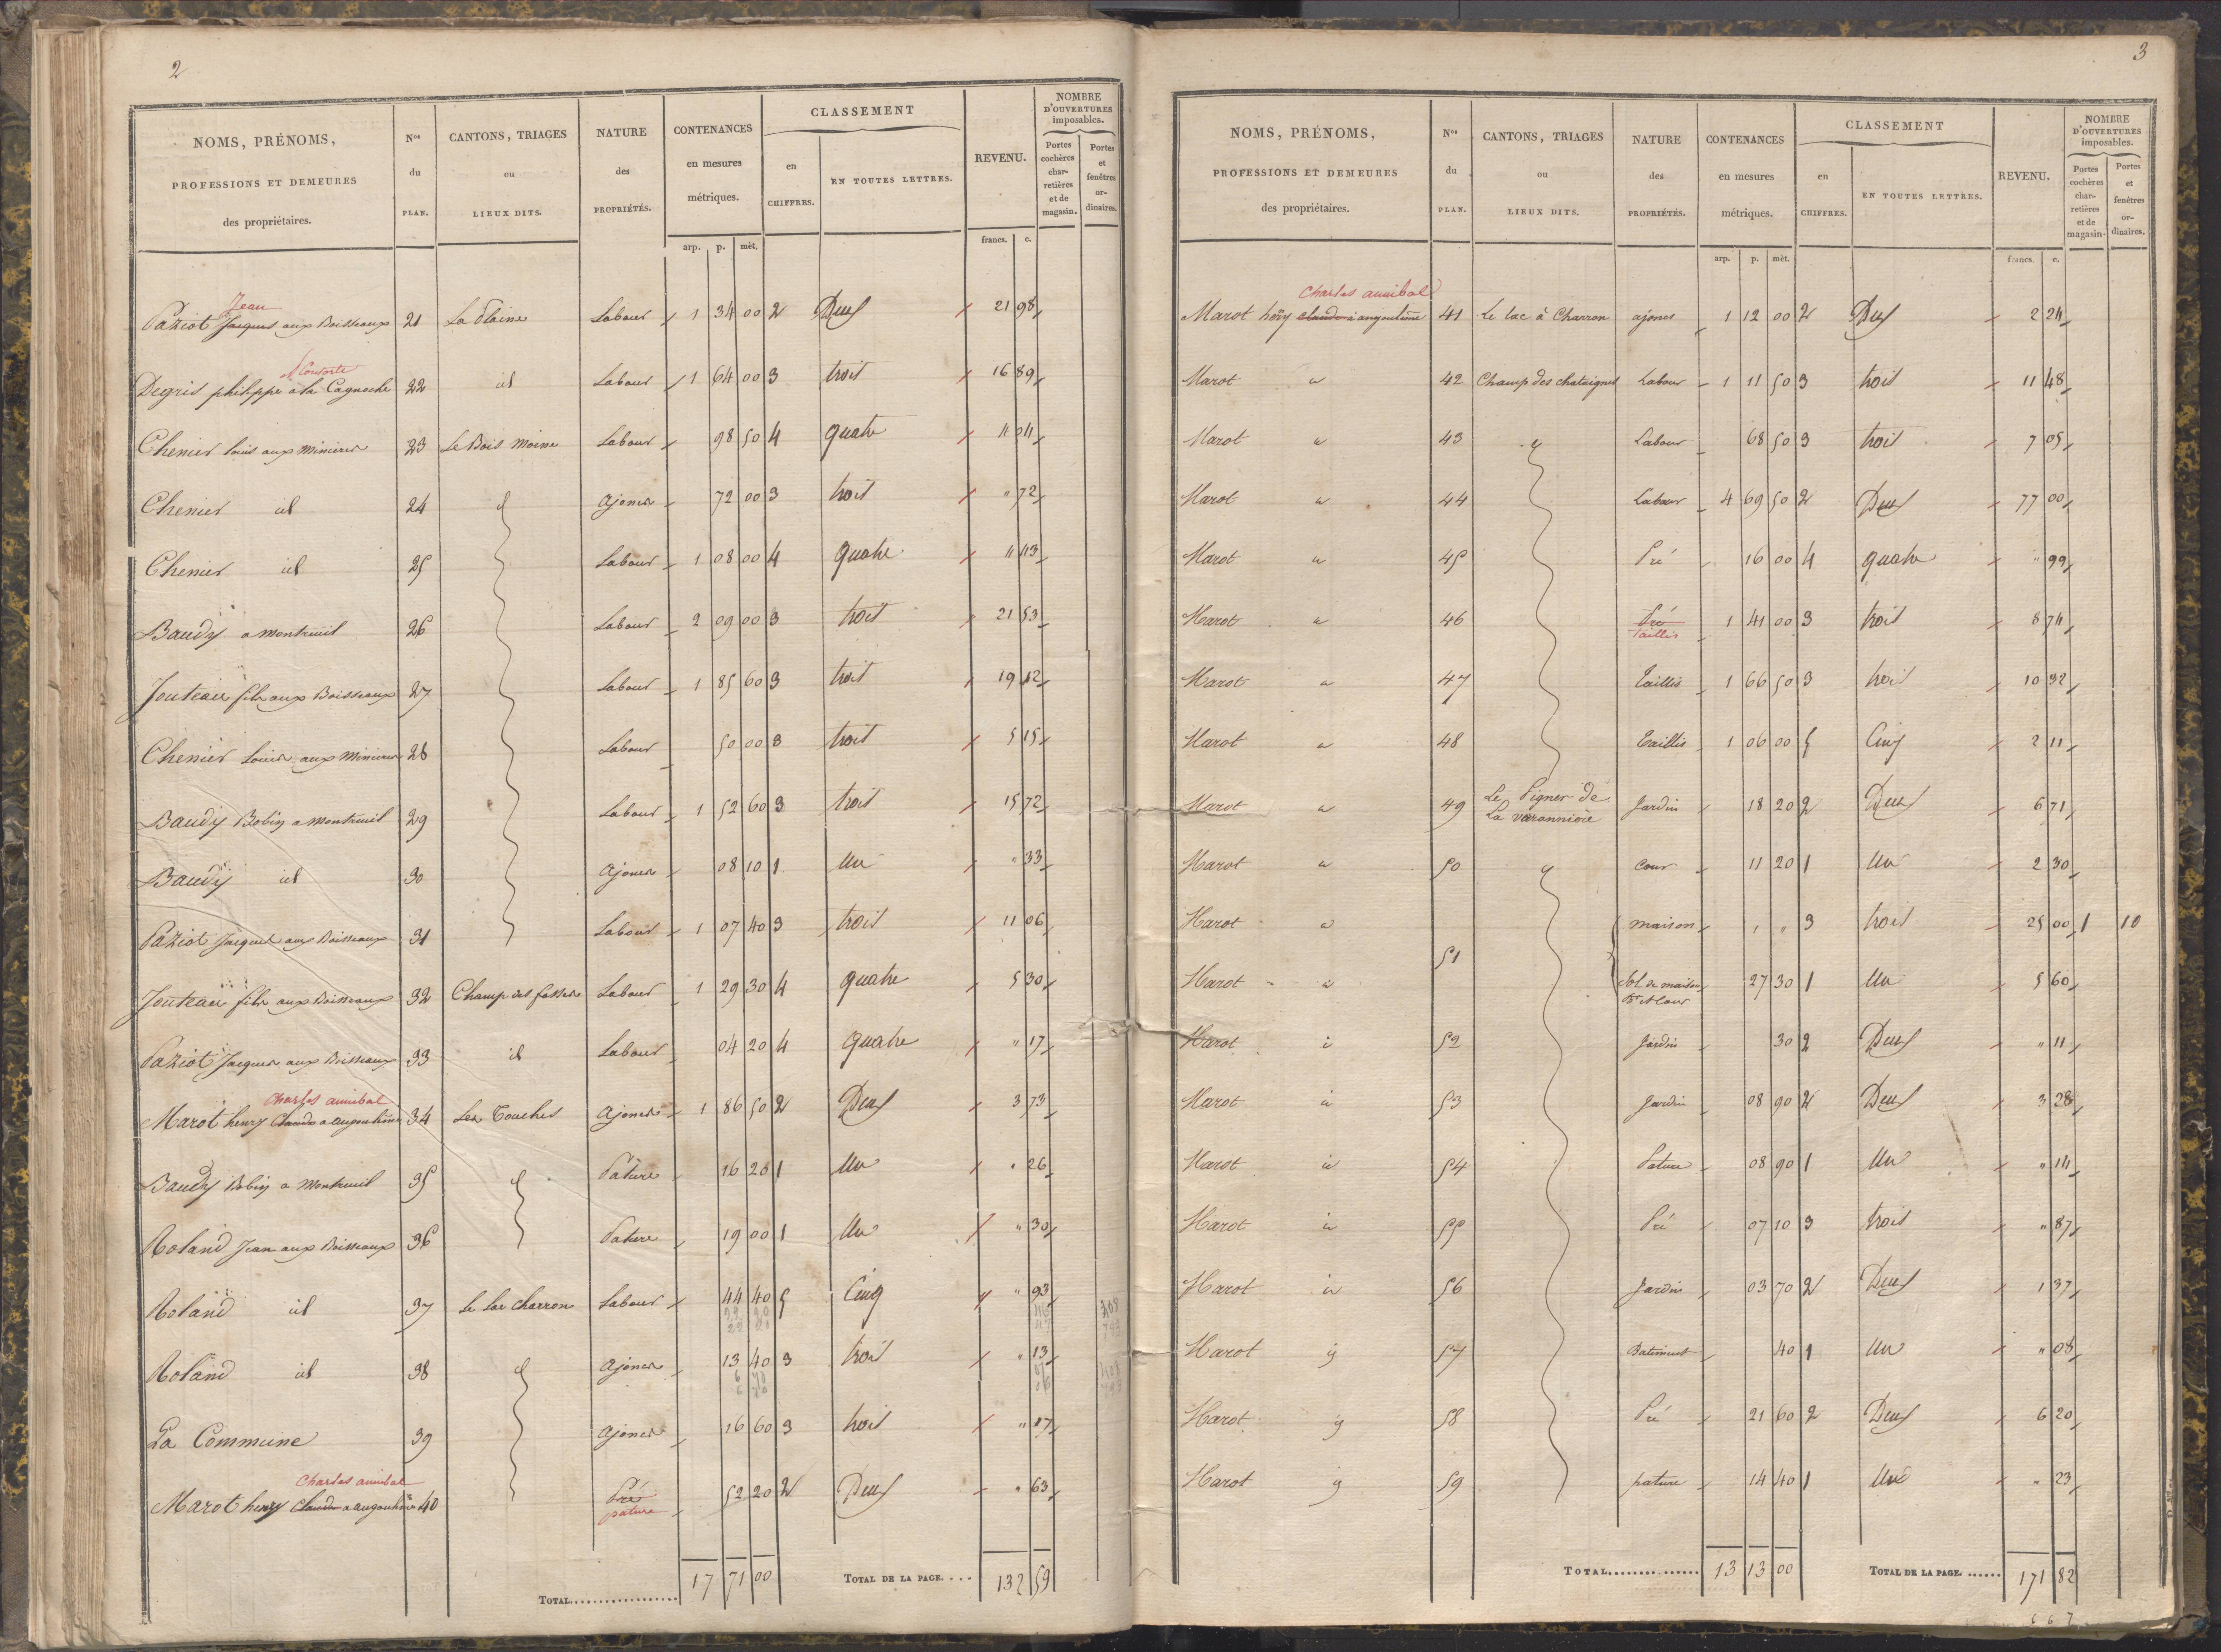 2
NOMS, PRÉNOMS, PROFESSIONS ET DEMEURES des propriétaires. Nos du PLAN. CANTONS, TRIAGES ou LIEUX DITS. NATURE des PROPRIÉTÉS. CONTENANCES en mesures métriques. CLASSEMENT en CHIFFRES. EN TOUTES LETTRES. REVENU. NOMBRE D'OUVERTURES imposables. Portes cochères charretières et de magasin. Portes et fenêtres ordinaires.
arp. p. mèt. francs. c.
Jean
Paziot Jacques aux Boisseaux 21 La Plaine Labour 1 34 00 2 Deux 21 98
et Consorts
Degris philippe a la Cagnoche 22 id Labour 1 64 00 3 trois 16 89
Chenier louis aux Minieres 23 Le Bois Moine Labour 98 50 4 quatre 4 04
Chenier id 24 id ajoncs 72 00 3 trois " 72
Chenier id 25 Labour 1 08 00 4 quatre 4 43
Baudy a montreuil 26 Labour 2 09 00 3 trois 21 53
Jouteau fils aux Boisseaux 27 Labour 1 85 60 3 trois 19 12
Chenier Louis aux Minieres 28 Labour 50 00 3 trois 5 15
Baudy Bobin a montreuil 29 Labour 1 52 60 3 trois 15 72
Baudy id 30 ajoncs 08 10 1 Un " 33
Paziot Jacques aux Boisseaux 31 Labour 1 07 40 3 trois 11 06
Jouteau fils aux Boisseaux 32 Champ des fosses Labour 1 29 30 4 quatre 5 30
Paziot Jacques aux Boisseaux 33 id Labour 04 20 4 quatre " 17
Charles annibal
Marot henry Claude a angoulême 34 Les Touches ajoncs 1 86 50 2 Deux 3 73
Baudy Bobin a Montreuil 35 id Pature 16 20 1 Un " 26
Roland Jean aux Boisseaux 36 Pature 19 00 1 Un " 30
Roland id 37 le lac charron Labour 44 40 5 Cinq " 93
Roland id 38 id ajoncs 13 40 3 trois " 13
La Commune 39 ajoncs 16 60 3 trois " 17
Charles annibal
Marot henry Claude a angoulême 40 Pré 52 20 2 Deux " 63
pature
TOTAL 17 71 00 TOTAL DE LA PAGE. 132 59
3
NOMS, PRÉNOMS, PROFESSIONS ET DEMEURES des propriétaires. Nos du PLAN. CANTONS, TRIAGES ou LIEUX DITS. NATURE des PROPRIÉTÉS. CONTENANCES en mesures métriques. CLASSEMENT en CHIFFRES. EN TOUTES LETTRES. REVENU. NOMBRE D'OUVERTURES imposables. Portes cochères charretières et de magasin. Portes et fenêtres ordinaires.
arp. p. mèt. francs. c.
Charles annibal
Marot henry claude a angoulême 41 Le lac à Charron ajoncs 1 12 00 2 Deux 2 24
Marot id 42 Champ des chataigners Labour 1 11 50 3 trois 11 48
Marot id 43 id Labour 68 50 3 trois 7 05
Marot id 44 Labour 4 69 50 2 Deux 77 00
Marot id 45 Pré 16 00 4 quatre " 99
Marot id 46 Pré 1 41 00 3 trois 8 74
Taillis
Marot id 47 Taillis 1 66 50 3 trois 10 32
Marot id 48 Taillis 1 06 00 5 Cinq 2 11
Marot id 49 Le Pigner de La varannière Jardin 18 20 2 Deux 6 71
Marot id 50 id Cour 11 20 1 Un 2 30
Marot id 51 maison " " 3 trois 25 00 1 10
Marot id Sol de maison 27 30 1 Un 5 60
Bt et Cour
Marot id 52 Jardin 30 2 Deux " 11
Marot id 53 Jardin 08 90 2 Deux 3 28
Marot id 54 Pature 08 90 1 Un " 14
Marot id 55 Pré 07 10 3 trois " 87
Marot id 56 Jardin 03 70 2 Deux 1 37
Marot id 57 Batiment 40 1 Un " 08
Marot id 58 Pré 21 60 2 Deux 6 20
Marot id 59 pature 14 40 1 Un " 23
TOTAL 13 13 00 TOTAL DE LA PAGE. 171 82
667